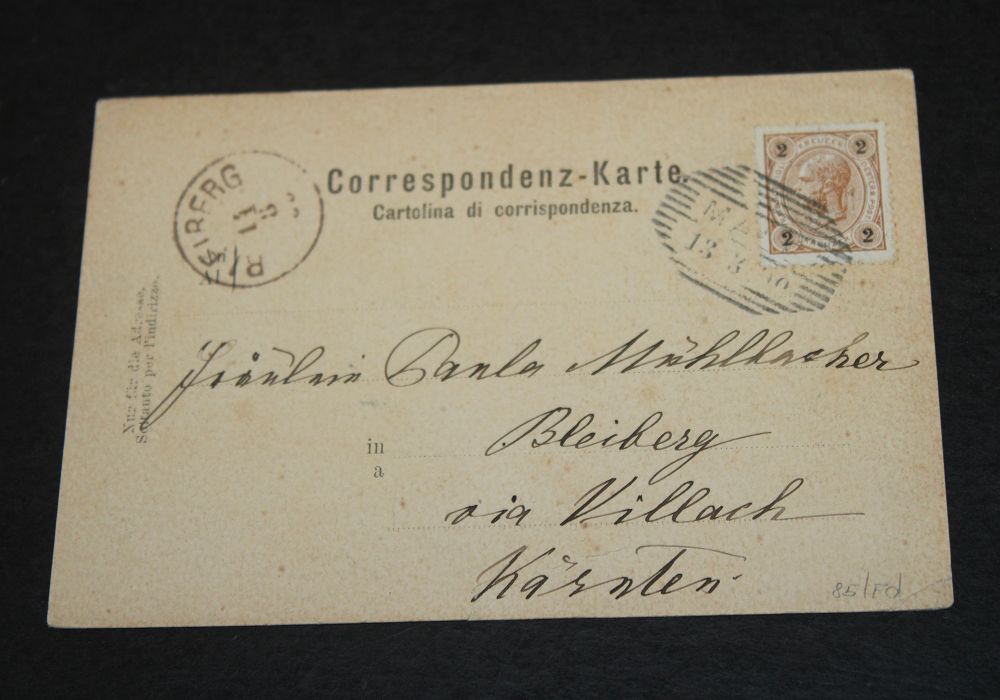 Correspondenz-Karte.
Cartolina di corrispondenza.
2 KREUZER 2
2 2
13 3
Nur für die Adresse.
Soltanto per l'indirizzo.
Fräulein Paula Mühlbacher
in
a
Bleiberg
via Villach
Kärnten.
85/Fd